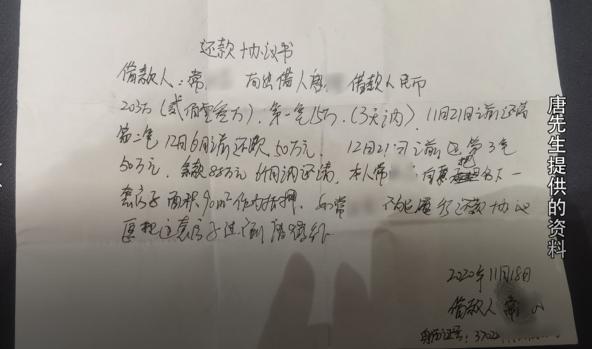 还款协议书
借款人:常 向出借人唐 借款人民币
203万(贰佰零叁万),第一笔15万,(3天内),11月21日之前还清
第二笔12月6日之前还款50万元, 12月21日之前还第3笔
50万元,余款88万元 个月内还清,本人常 自愿把名下一
套房子面积90m²作为抵押,如常 不能履行还款协议
愿把这套房子过户给唐
2020年11月18日
借款人 常
身份证号:3702
唐先生提供的资料